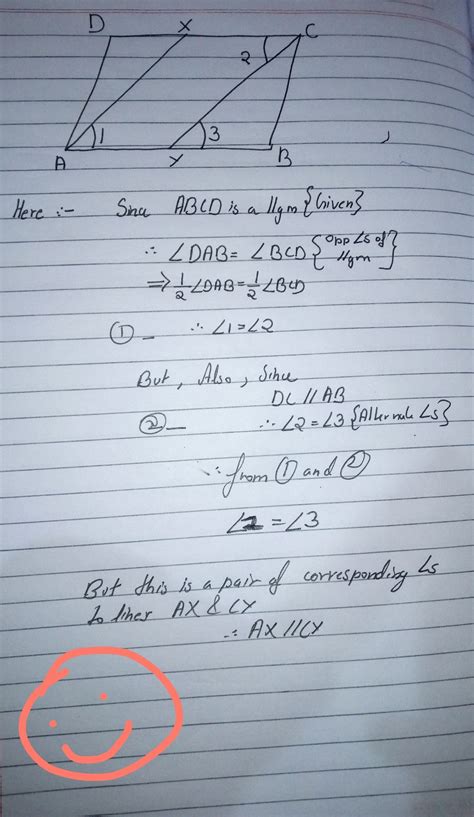 D X C
2
1 3
A Y B
Here :- Since ABCD is a ||gm {Given}
∴ ∠DAB = ∠BCD {opp ∠s of ||gm}
⇒ 1/2 ∠DAB = 1/2 ∠BCD
① - ∴ ∠1 = ∠2
But, Also, Since
DC // AB
② - ∴ ∠2 = ∠3 {Alternate ∠s}
∴ from ① and ②
∠ = ∠3
But this is a pair of corresponding ∠s
to lines AX & CY
∴ AX // CY